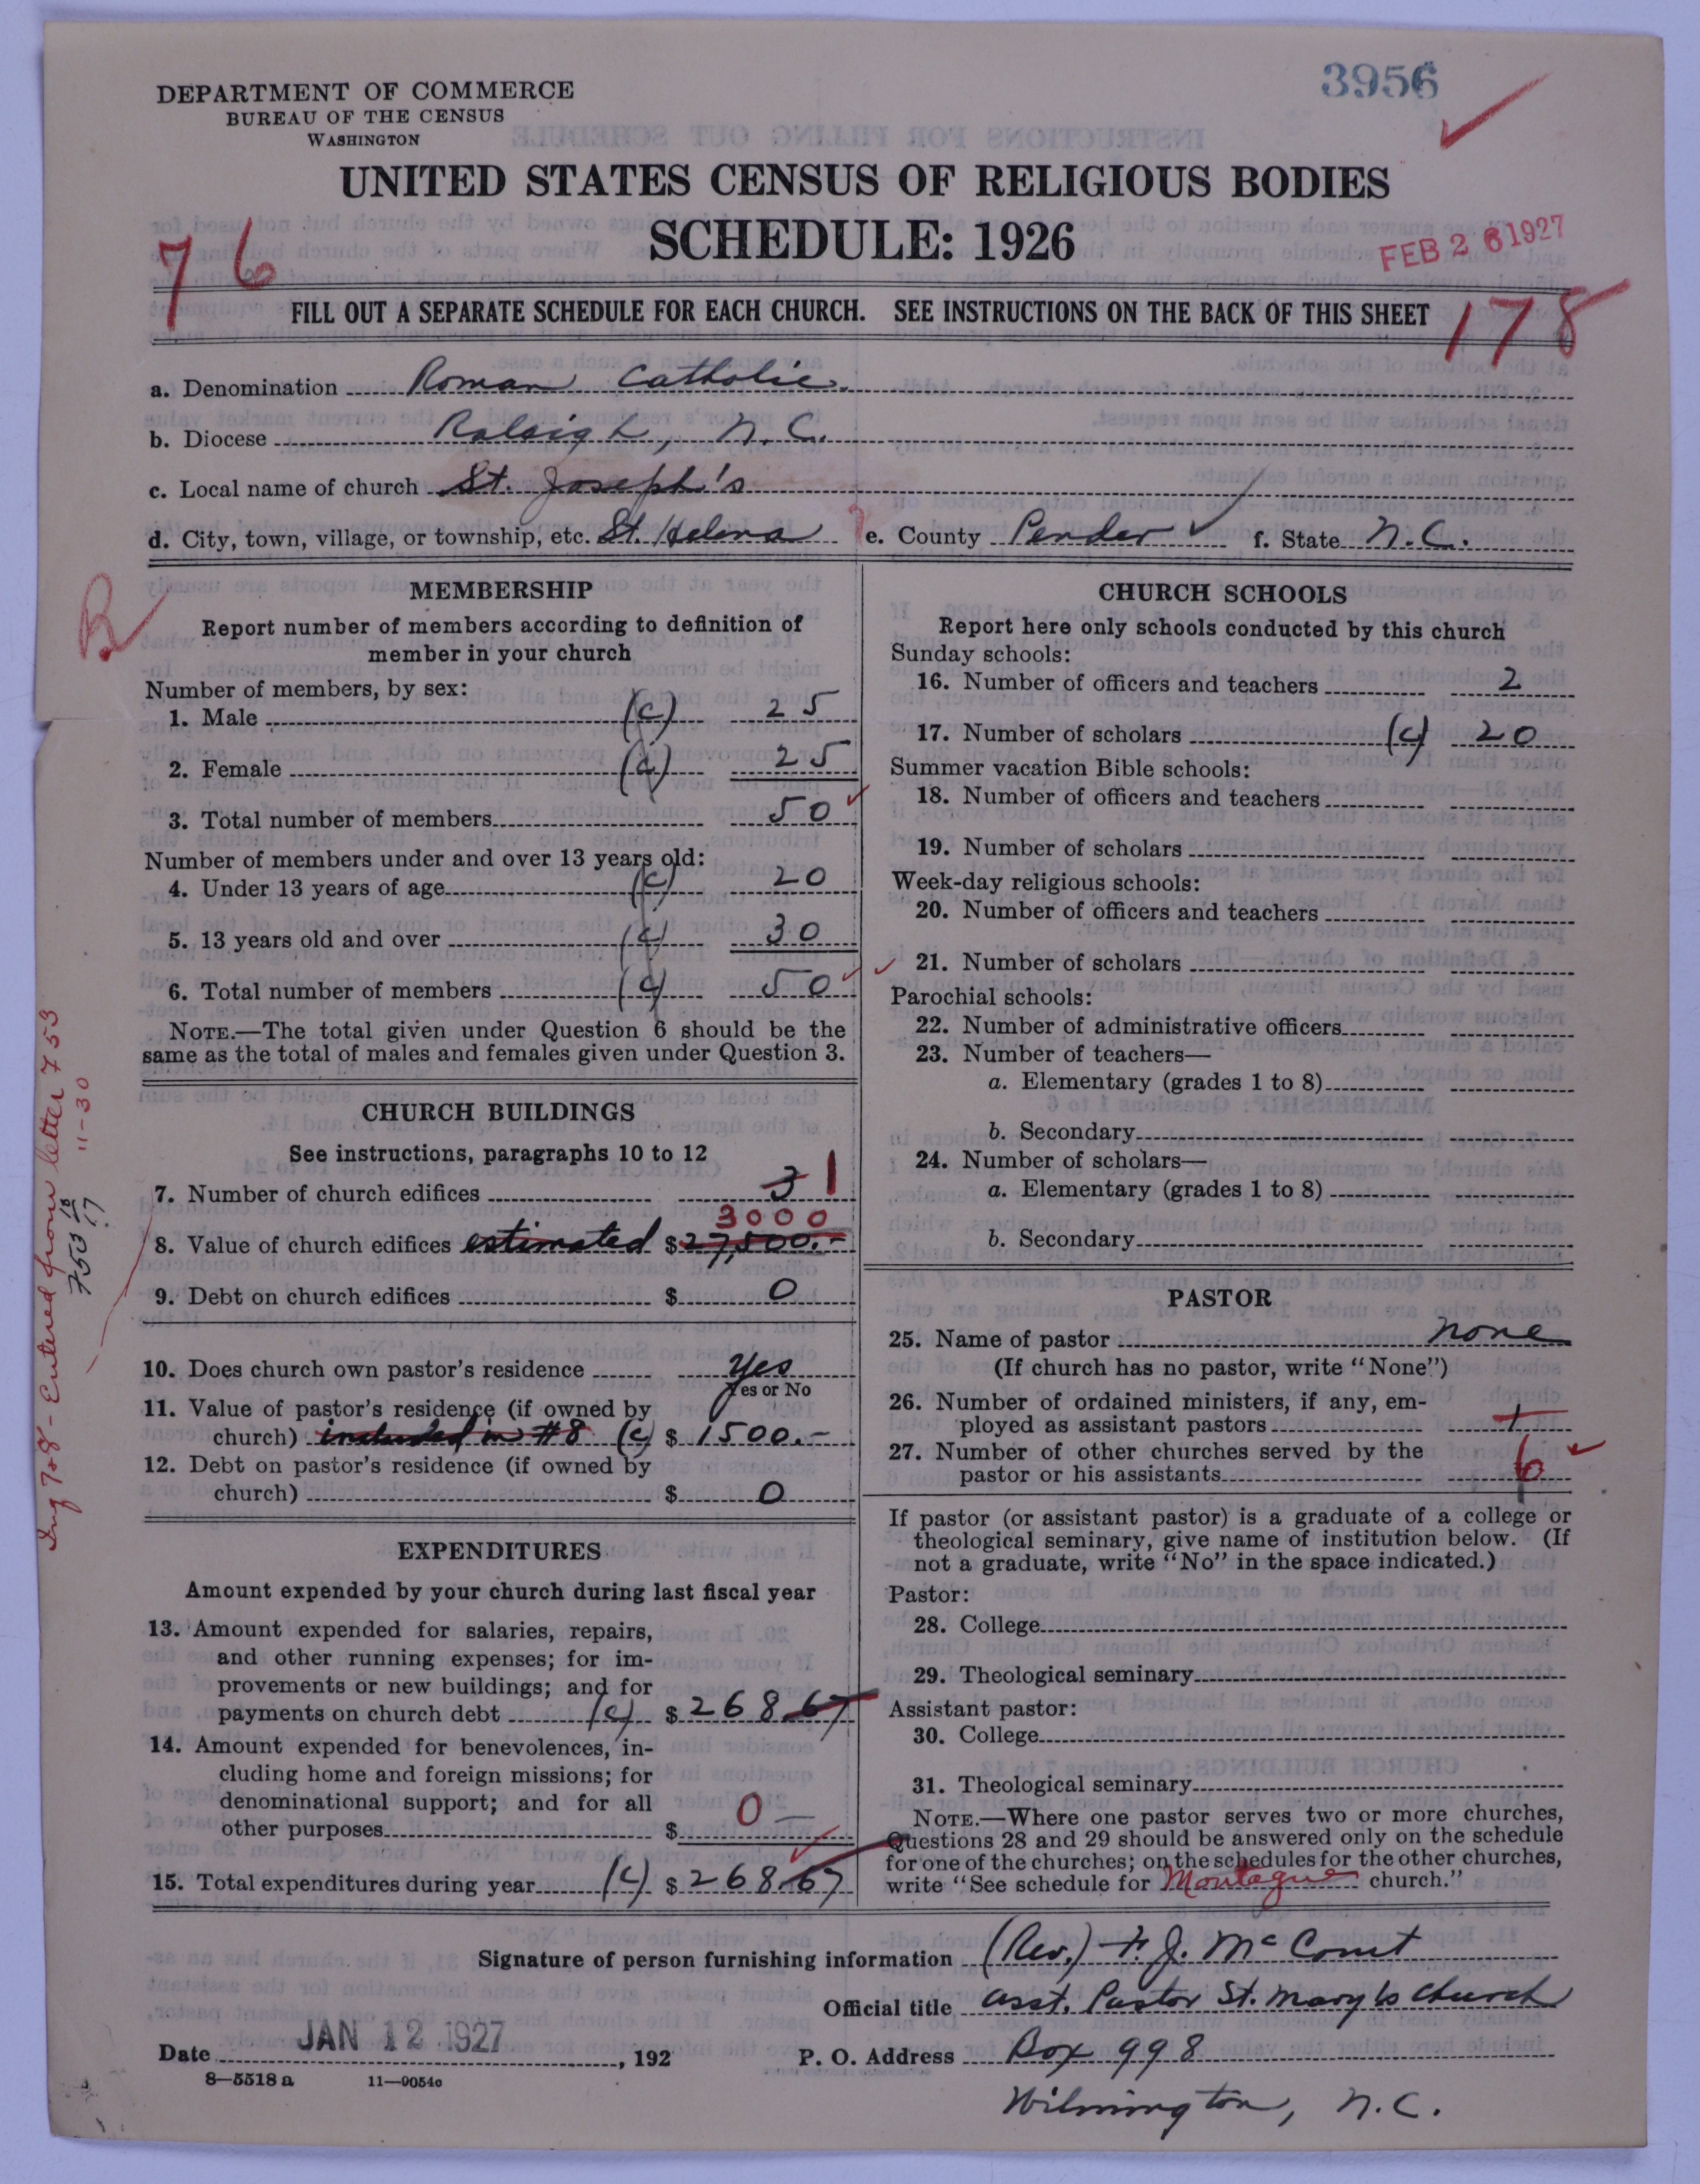 3956
DEPARTMENT OF COMMERCE
BUREAU OF THE CENSUS
WASHINGTON
UNITED STATES CENSUS OF RELIGIOUS BODIES
SCHEDULE: 1926
FEB 26 1927
76
FILL OUT A SEPARATE SCHEDULE FOR EACH CHURCH. SEE INSTRUCTIONS ON THE BACK OF THIS SHEET
178
a. Denomination Roman Catholic.
b. Diocese Raleigh, N.C.
c. Local name of church St. Joseph's
d. City, town, village, or township, etc. St. Helena ? e. County Pender f. State N.C.
B
MEMBERSHIP
Report number of members according to definition of
member in your church
Number of members, by sex:
1. Male (c) 25
2. Female (c) 25
3. Total number of members 50
Number of members under and over 13 years old:
4. Under 13 years of age (c) 20
5. 13 years old and over (c) 30
6. Total number of members (c) 50
NOTE.—The total given under Question 6 should be the
same as the total of males and females given under Question 3.
CHURCH BUILDINGS
See instructions, paragraphs 10 to 12
7. Number of church edifices 3 1
3000
8. Value of church edifices estimated $27,500.-
9. Debt on church edifices $ 0
10. Does church own pastor's residence Yes
Yes or No
11. Value of pastor's residence (if owned by
church) included in #8 (c) $ 1500.-
12. Debt on pastor's residence (if owned by
church) $ 0
EXPENDITURES
Amount expended by your church during last fiscal year
13. Amount expended for salaries, repairs,
and other running expenses; for im-
provements or new buildings; and for
payments on church debt (c) $268.67
14. Amount expended for benevolences, in-
cluding home and foreign missions; for
denominational support; and for all
other purposes $ 0 —
15. Total expenditures during year (c) $268.67
CHURCH SCHOOLS
Report here only schools conducted by this church
Sunday schools:
16. Number of officers and teachers 2
17. Number of scholars (c) 20
Summer vacation Bible schools:
18. Number of officers and teachers
19. Number of scholars
Week-day religious schools:
20. Number of officers and teachers
21. Number of scholars
Parochial schools:
22. Number of administrative officers
23. Number of teachers—
a. Elementary (grades 1 to 8)
b. Secondary
24. Number of scholars—
a. Elementary (grades 1 to 8)
b. Secondary
PASTOR
25. Name of pastor none
(If church has no pastor, write "None")
26. Number of ordained ministers, if any, em-
ployed as assistant pastors 1
27. Number of other churches served by the
pastor or his assistants 6
If pastor (or assistant pastor) is a graduate of a college or
theological seminary, give name of institution below. (If
not a graduate, write "No" in the space indicated.)
Pastor:
28. College
29. Theological seminary
Assistant pastor:
30. College
31. Theological seminary
NOTE.—Where one pastor serves two or more churches,
Questions 28 and 29 should be answered only on the schedule
for one of the churches; on the schedules for the other churches,
write "See schedule for Montague church."
Signature of person furnishing information (Rev.) F. J. McCourt
Official title Asst. Pastor St. Mary's Church
Date JAN 12 1927, 192
P. O. Address Box 998
Wilmington, N.C.
8—5518 a 11—9054c
Inq 7-8 - Entered from letter 753
11-30